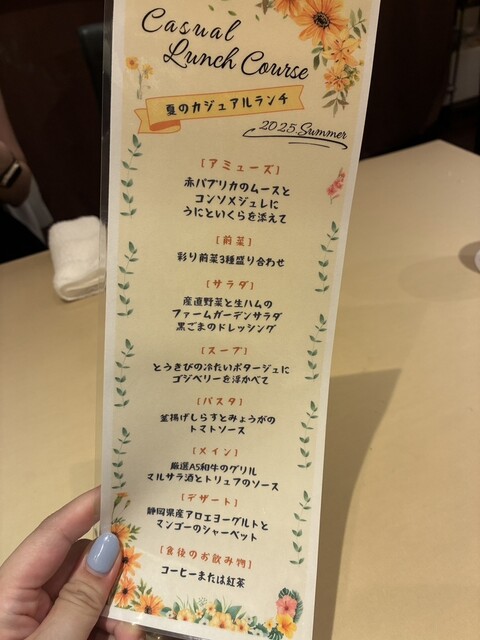 Casual
Lunch Course
夏のカジュアルランチ
2025 Summer
[アミューズ]
赤パプリカのムースと
コンソメジュレに
うにといくらを添えて
[前菜]
彩り前菜3種盛り合わせ
[サラダ]
産直野菜と生ハムの
ファームガーデンサラダ
黒ごまのドレッシング
[スープ]
とうきびの冷たいポタージュに
ゴジベリーを浮かべて
[パスタ]
釜揚げしらすとみょうがの
トマトソース
[メイン]
厳選A5和牛のグリル
マルサラ酒とトリュフのソース
[デザート]
静岡県産アロエヨーグルトと
マンゴーのシャーベット
[食後のお飲み物]
コーヒーまたは紅茶